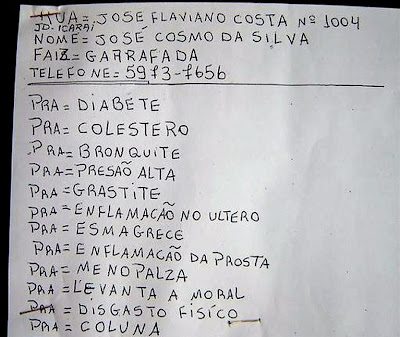 RUA= JOSE FLAVIANO COSTA Nº 1004
JD. ICARAI
NOME= JOSÉ COSMO DA SILVA
FAIZ= GARRAFADA
TELEFONE= 5973-7656
PRA= DIABETE
PRA= COLESTERO
PRA= BRONQUITE
PRA= PRESÃO ALTA
PRA= GRASTITE
PRA= ENFLAMAÇÃO NO ULTERO
PRA= ESMAGRECE
PRA= ENFLAMAÇÃO DA PROSTA
PRA= MENOPALZA
PRA= LEVANTA A MORAL
PRA= DISGASTO FISÍCO
PRA= COLUNA